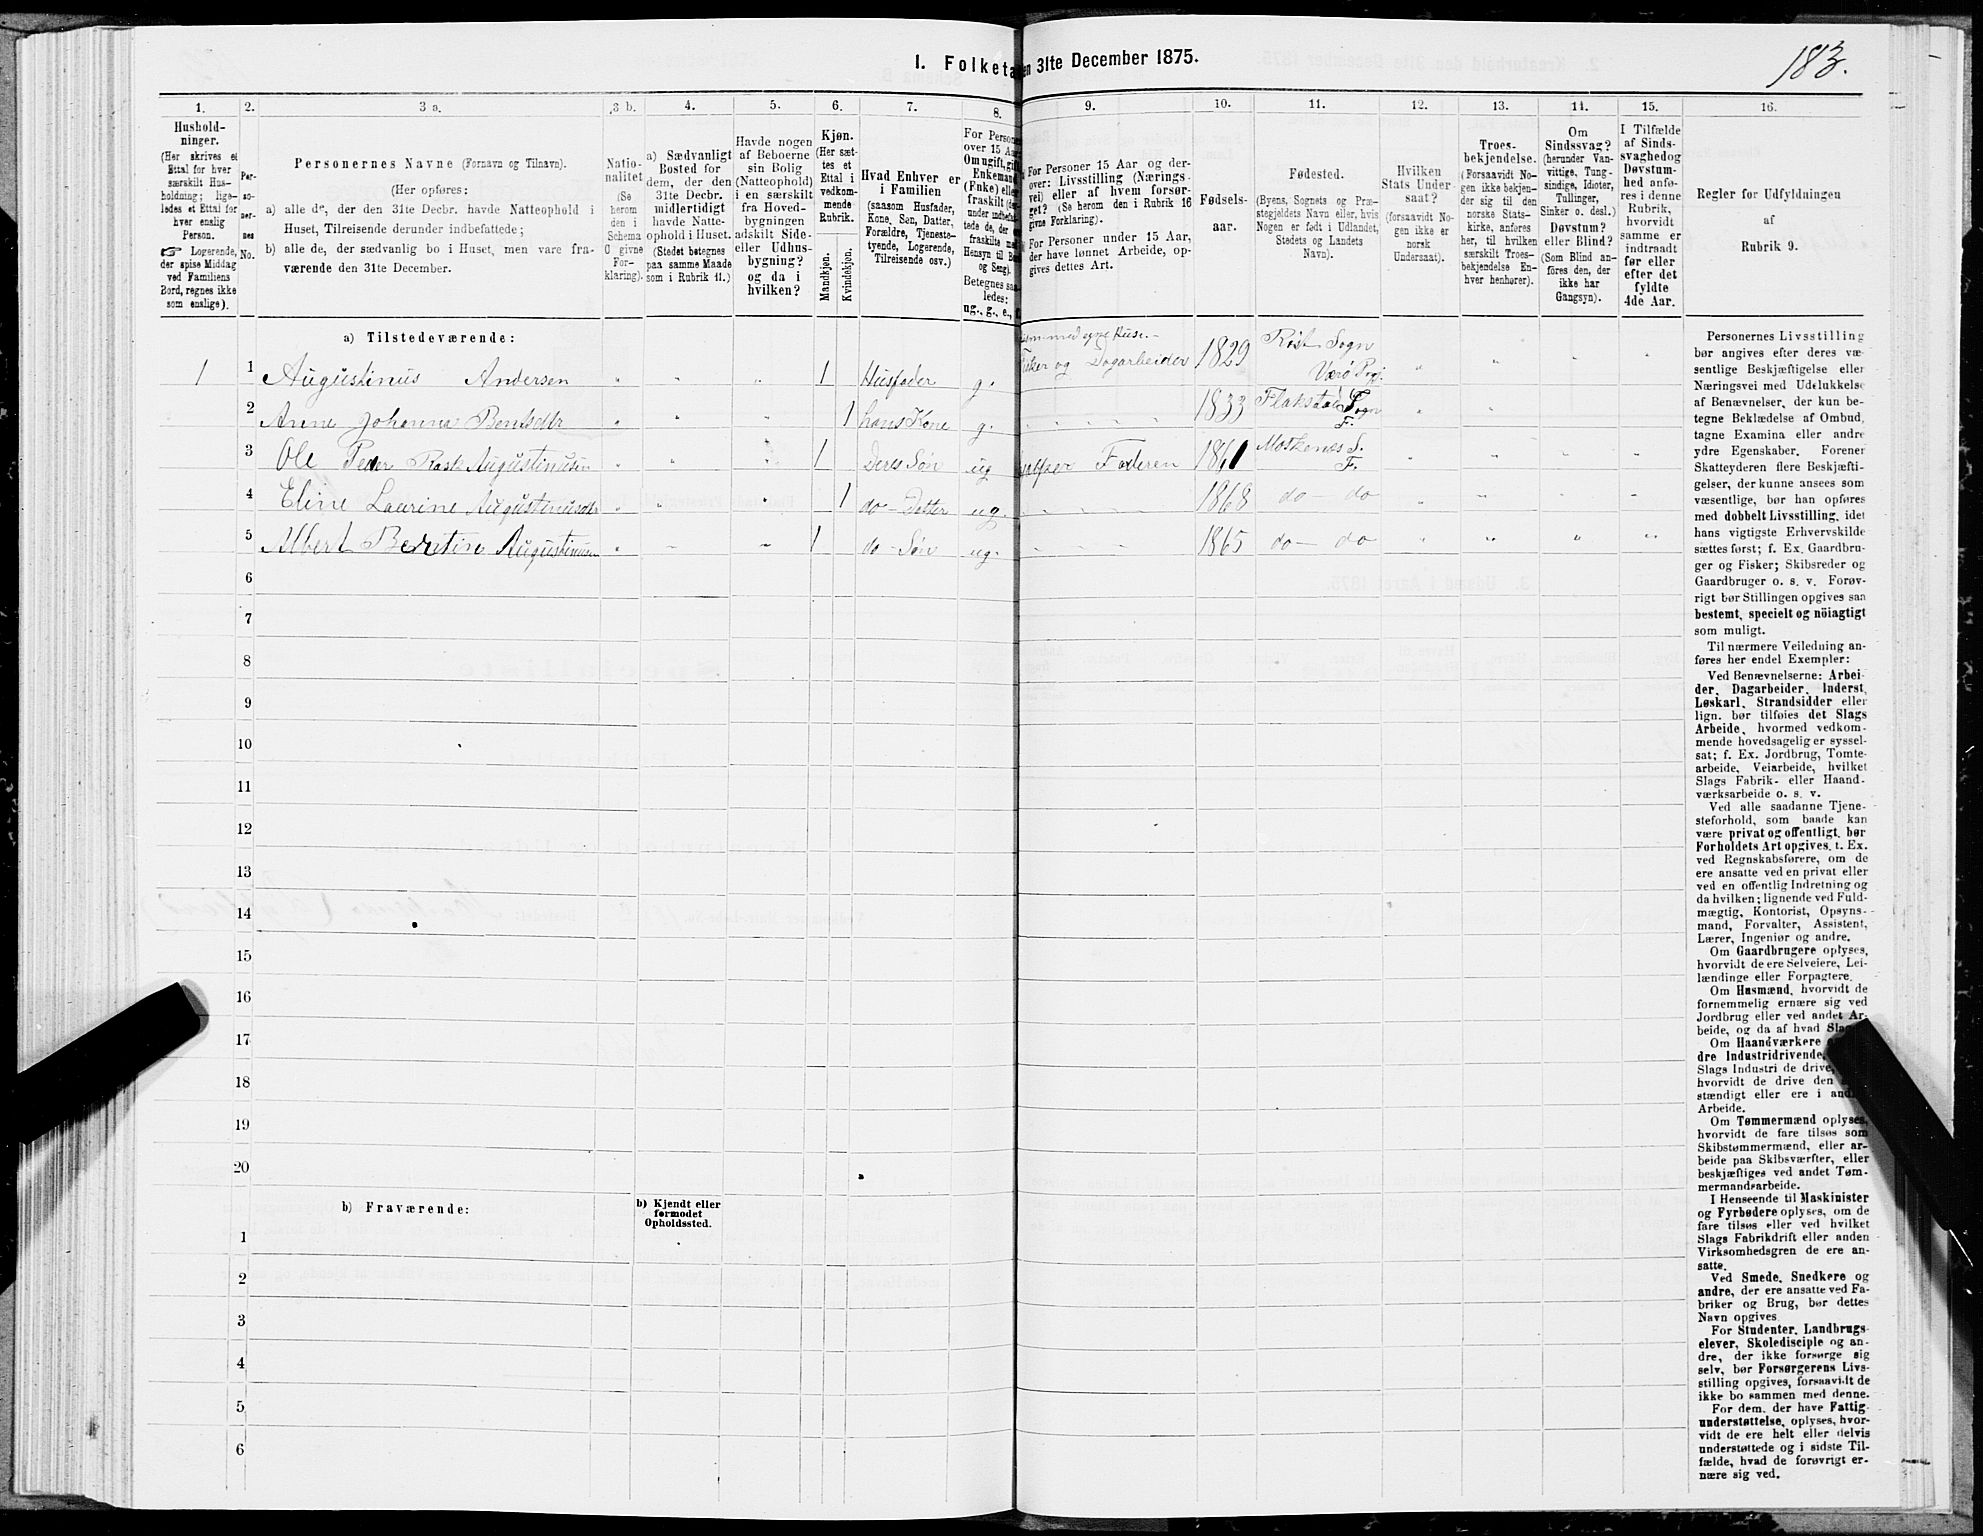 I. Folketa en 31te December 1875.
183.
1.
2.
3 a.
3 b.
4.
5.
6.
7.
8.
9.
10.
11.
12.
13.
14.
15.
16.
Hushold-
ninger.
(Her skrives et
Ettal for hver
særskilt Hus-
holdning; lige-
ledes et Ettal for
hver enslig
Person.
☞ Logerende,
der spise Middag
ved Familiens
Bord, regnes ikke
som enslige).
Per-
so-
ner-
nes
No.
Personernes Navne (Fornavn og Tilnavn).
(Her opføres:
a) alle de, der den 31te Decbr. havde Natteophold i
Huset, Tilreisende derunder indbefattede;
b) alle de, der sædvanlig bo i Huset, men vare fra-
værende den 31te December.
Natio-
nalitet
(Se
herom
den i
Schema
C givne
For-
klaring).
a) Sædvanligt
Bosted for
dem, der den
31te Decbr.
midlertidigt
havde Natte-
ophold i Huset.
(Stedet betegnes
paa samme Maade
som i Rubrik 11.)
Havde nogen
af Beboerne
sin Bolig
(Natteophold)
i en særskilt
fra Hoved-
bygningen
adskilt Side-
eller Udhus-
bygning?
og da i
hvilken?
Kjøn.
(Her sæt-
tes et
Ettal i
vedkom-
mende
Rubrik.
Mandkjøn.
Kvindekjøn.
Hvad Enhver er
i Familien
(saasom Husfader,
Kone, Søn, Datter,
Forældre, Tjeneste-
tyende, Logerende,
Tilreisende osv.)
For Persone
over 15 Aar
Om ugift, gift,
Enkemand
(Enke) eller
fraskilt
under indbefat-
tede de, der ere
fraskilte med
Hensyn til Bord
og Seng).
Betegnes saa-
ledes:
ug., g., e., f.
For Personer 15 Aar og der-
over: Livsstilling (Nærings-
vei) eller af hvem forsør-
get? (Se herom den i Rubrik 16
givne Forklaring).
For Personer under 15 Aar,
der have lønnet Arbeide, op-
gives dettes Art.
Fødsels-
aar.
Fødested.
(Byens, Sognets og Præ-
stegjeldets Navn eller, hvis
Nogen er født i Udlandet,
Stedets og Landets
Navn).
Hvilken
Stats Under-
saat?
(forsaavidt No-
gen ikke er
norsk
Undersaat).
Troes-
bekjendelse.
(Forsaavidt No-
gen ikke bekjen-
der sig til den
norske Stats-
kirke, anføres
her, til hvilken
særskilt Troes-
bekjendelse En-
hver henhører).
Om
Sindssvag?
(herunder Van-
vittige, Tung-
sindige, Idioter,
Tullinger,
Sinker o. desl.)
Døvstum?
eller Blind?
(Som Blind an-
føres den, der
ikke har
Gangsyn).
I Tilfælde
af Sinds-
svaghed og
Døvstum-
hed anfø-
res i denne
Rubrik,
hvorvidt
samme er
indtraadt
før eller
efter det
fyldte
4de Aar.
Regler for Udfyldningen
af
Rubrik 9.
a) Tilstedeværende:
med egne Huse
1 1 Augustinus Andersen " " " 1 Husfader g. Fisker og Dagarbeider 1829 Røst Sogn Værø Pgj. " " " "
2 Anne Johanna Bentsdtr " " " 1 hans Kone g. " " " " 1833 Flakstad Sogn F. " "
3 Ole Peder Rask Augustinusen " " " 1 Deres Søn ug Faderen 1861 Moskenes S. F. " " " "
4 Eline Laurine Augustinusdtr " " " 1 do - Datter ug. " " " " 1868 do — do " " " "
5 Albert Berntin Augustinusen " " " 1 do - Søn ug. " " " 1865 do — do " " " "
6
7
8
9
10
11
12
13
14
15
16
17
18
19
20
b) Fraværende:
b) Kjendt eller
formodet
Opholdssted.
1
2
3
4
5
6
Personernes Livsstilling
bør angives efter deres væ-
sentlige Beskjæftigelse eller
Næringsvei med Udelukkelse
af Benævnelser, der kun be-
tegne Beklædelse af Ombud,
tagne Examina eller andre
ydre Egenskaber. Forener
Skatteyderen flere Beskjæfti-
gelser, der kunne ansees som
væsentlige, bør han opføres
med dobbelt Livsstilling, idet
hans vigtigste Erhvervskilde
sættes først; f. Ex. Gaardbru-
ger og Fisker; Skibsreder og
Gaardbruger o. s. v. Forøv-
rigt bør Stillingen opgives saa
bestemt, specielt og nöiagtigt
som muligt.
Til nærmere Veiledning an-
føres her endel Exempler:
Ved Benævnelserne: Arbei-
der, Dagarbeider, Inderst,
Løskarl, Strandsidder eller
lign. bør tilføies det Slags
Arbeide, hvormed vedkom-
mende hovedsagelig er syssel-
sat; f. Ex. Jordbrug, Tomte-
arbeide, Veiarbeide, hvilket
Slags Fabrik- eller Haand-
værksarbeide o. s. v.
Ved alle saadanne Tjene-
steforhold, som baade kan
være privat og offentligt, bør
Forholdets Art opgives, t. Ex.
ved Regnskabsførere, om de
ere ansatte ved en privat eller
ved en offentlig Indretning og
da hvilken; lignende ved Fuld-
mægtig, Kontorist, Opsyns-
mand, Forvalter, Assistent,
Lærer, Ingeniør og andre.
Om Gaardbrugere oplyses,
hvorvidt de ere Selveiere, Lei-
lændinge eller Forpagtere.
Om Husmænd, hvorvidt de
fornemmelig ernære sig ved
Jordbrug eller ved andet Ar-
beide, og da af hvad Slags
Om Haandværkere
dre Industridrivende,
Slags Industri de drive,
hvorvidt de drive den
stændigt eller ere i andres
Arbeide.
Om Tømmermænd oplyses,
hvorvidt de fare tilsøs som
Skibstømmermænd, eller ar-
beide paa Skibsværfter, eller
beskjæftiges ved andet Tøm-
mermandsarbeide.
I Henseende til Maskinister
og Fyrbødere oplyses, om de
fare tilsøs eller ved hvilket
Slags Fabrikdrift eller anden
Virksomhedsgren de ere an-
satte.
Ved Smede, Snedkere og
andre, der ere ansatte ved Fa-
briker og Brug, bør dettes
Navn opgives.
For Studenter, Landbrugs-
elever, Skoledisciple og an-
dre, der ikke forsørge sig
selv, bør Forsørgerens Livs-
stilling opgives, forsaavidt de
ikke bo sammen med denne.
For dem, der have Fattig-
understøttelse, oplyses, hvor-
vidt de ere helt eller delvis
understøttede og i sidste Til-
fælde, hvad de forøvrigt er-
nære sig ved.